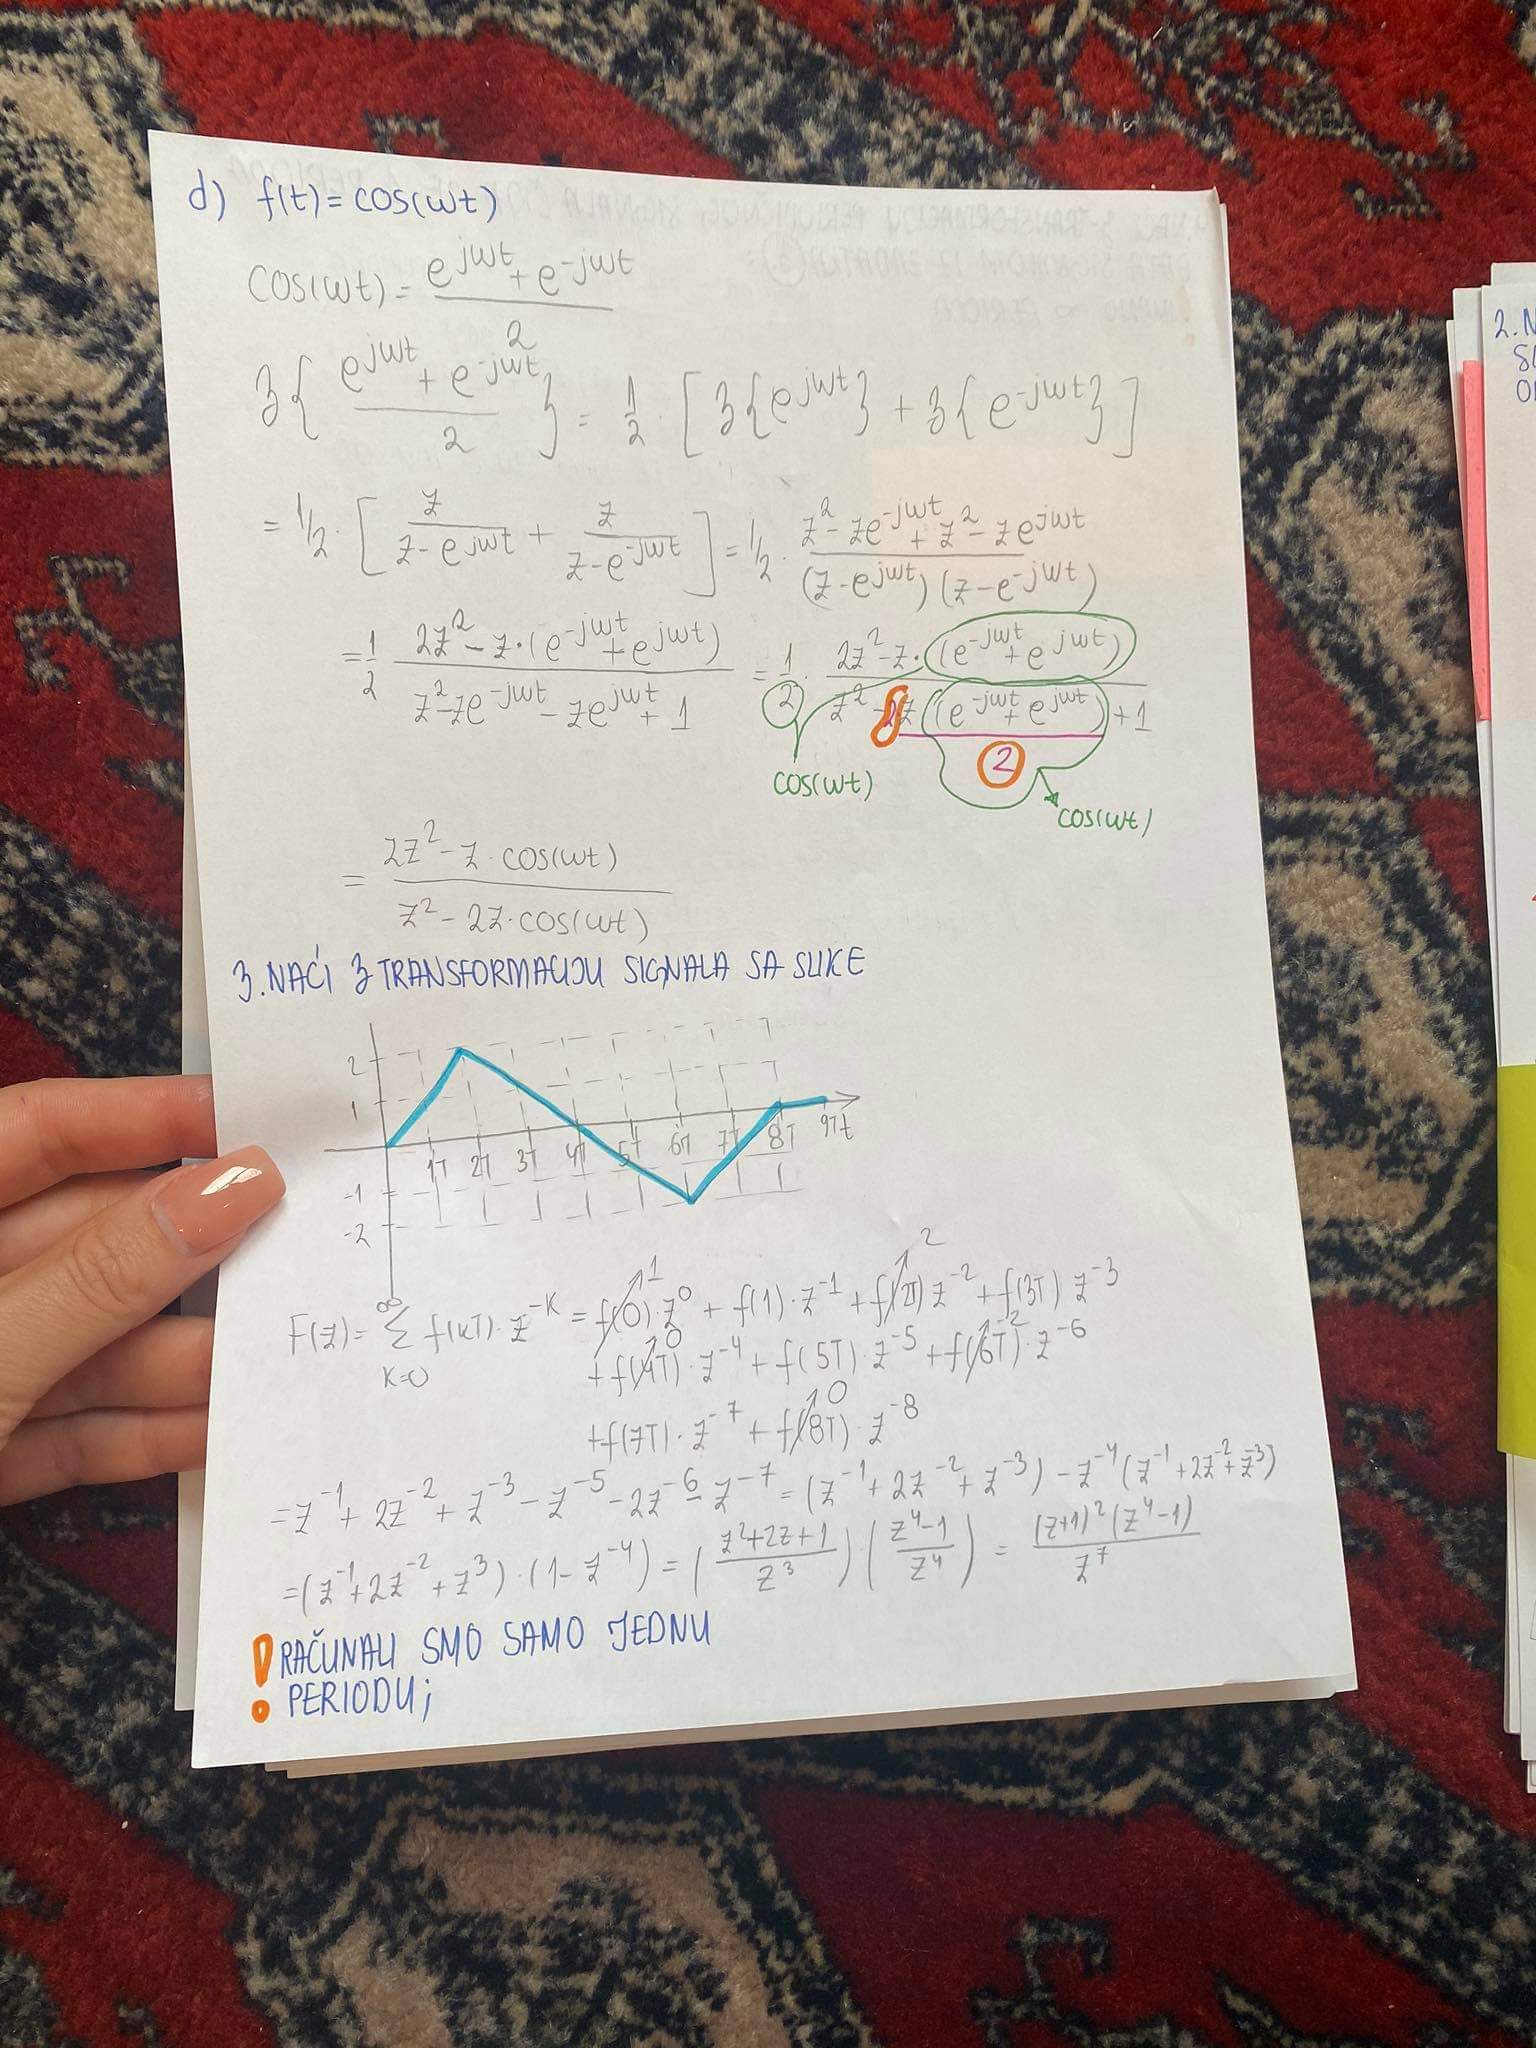 d) f(t) = cos(ωt)
cos(ωt) = (e^{jωt} + e^{-jωt}) / 2
ʒ{ (e^{jωt} + e^{-jωt}) / 2 } = 1/2 · [ ʒ{e^{jωt}} + ʒ{e^{-jωt}} ]
= 1/2 · [ z / (z - e^{jωt}) + z / (z - e^{-jωt}) ] = 1/2 · (z² - ze^{-jωt} + z² - ze^{jωt}) / ((z - e^{jωt})(z - e^{-jωt}))
= 1/2 (2z² - z·(e^{-jωt} + e^{jωt})) / (z² - ze^{-jωt} - ze^{jωt} + 1) = 1/2 · (2z² - z·(e^{-jωt} + e^{jωt})) / (z² - 2z (e^{-jωt} + e^{jωt})/2 + 1)
cos(ωt)
cos(ωt)
= (2z² - z·cos(ωt)) / (z² - 2z·cos(ωt))
3. NAĆI ʒ TRANSFORMACIJU SIGNALA SA SLIKE
2
1
1T 2T 3T 4T 5T 6T 7T 8T 9T t
-1
-2
F(z) = ∞Σk=0 f(kT)·z^{-k} = f(0)↗1·z⁰ + f(1)·z^{-1} + f(2T)↗2 z^{-2} + f(3T) z^{-3}
+ f(4T)↗0·z^{-4} + f(5T)·z^{-5} + f(6T)↗-2·z^{-6}
+ f(7T)·z^{-7} + f(8T)↗0·z^{-8}
= z^{-1} + 2z^{-2} + z^{-3} - z^{-5} - 2z^{-6} - z^{-7} = (z^{-1} + 2z^{-2} + z^{-3}) - z^{-4}(z^{-1} + 2z^{-2} + z^{-3})
= (z^{-1} + 2z^{-2} + z³)·(1 - z^{-4}) = ((z² + 2z + 1) / z³)·((z⁴ - 1) / z⁴) = (z+1)²(z⁴ - 1) / z⁷
! RAČUNALI SMO SAMO JEDNU
PERIODU;
2.